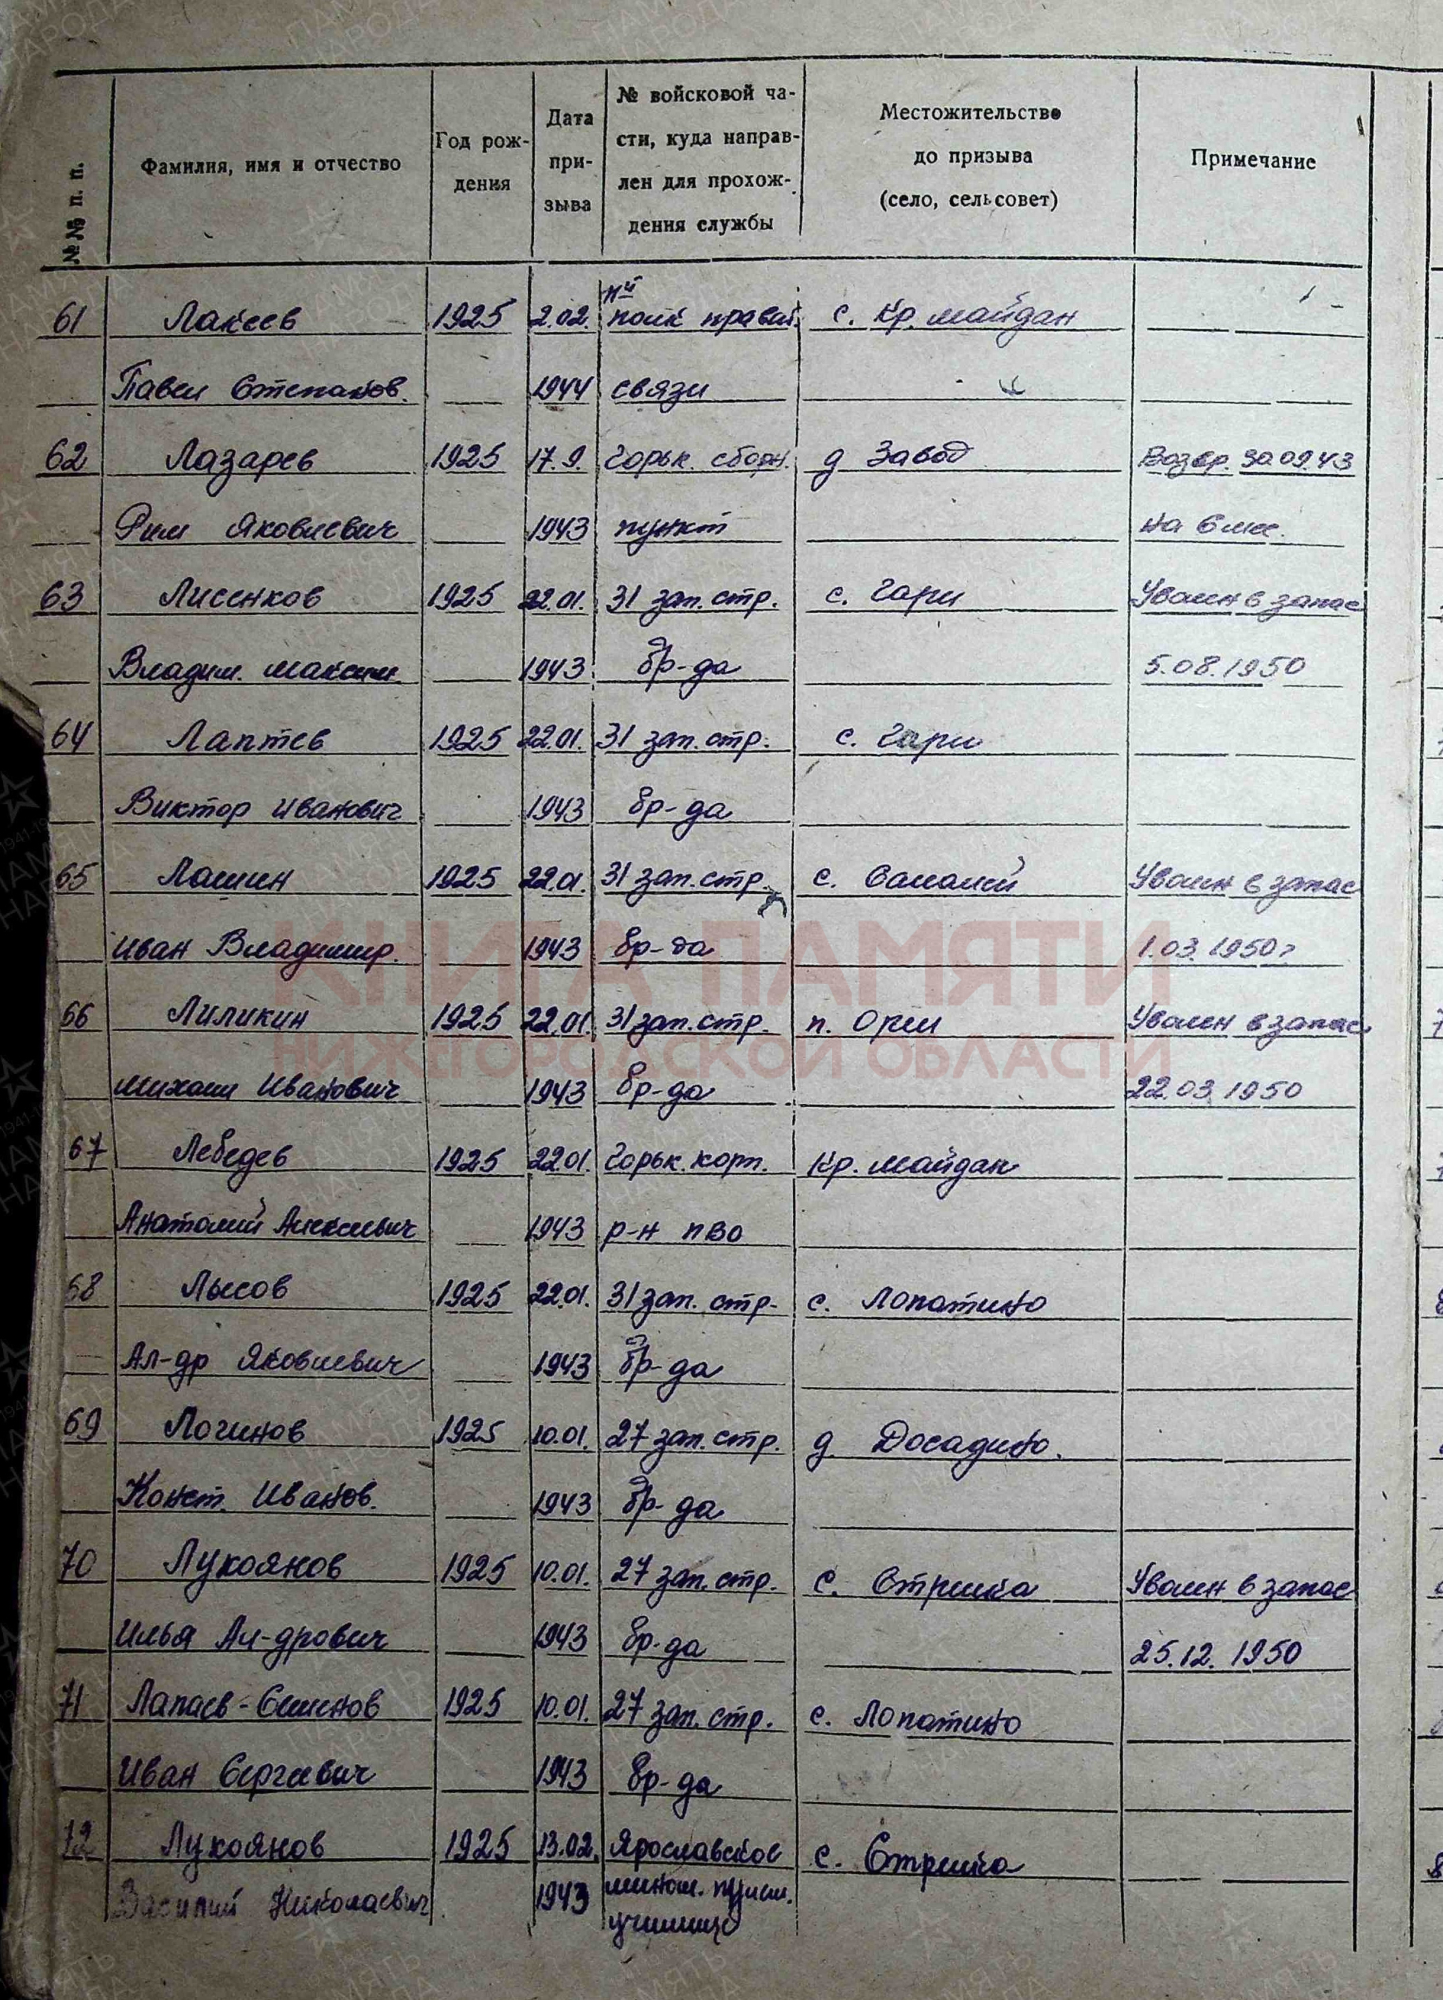 №№ п. п.
Фамилия, имя и отчество
Год рож-
дения
Дата
при-
зыва
№ войсковой ча-
сти, куда направ-
лен для прохож-
дения службы
Местожительство
до призыва
(село, сельсовет)
Примечание
61 Лакеев 1925 2.02. полк правит. с. Кр. Майдан
Павел Степанов. 1944 связи
62 Лазарев 1925 17.9. Горьк. сборн. д Завод Возвр. 30.09.43
Рим Яковлевич 1943 пункт на 6 мес.
63 Лисенков 1925 22.01. 31 зап. стр. с. Гари Уволен в запас
Владим. Максим 1943 бр-да 5.08.1950
64 Лаптев 1925 22.01. 31 зап. стр. с. Гари
Виктор Иванович 1943 бр-да
65 Лашин 1925 22.01. 31 зап. стр. с. Саналей Уволен в запас
Иван Владимир. 1943 бр-да 1.03.1950г
КНИГА ПАМЯТИ
66 Лиликин 1925 22.01. 31 зап. стр. п. Орги Уволен в запас
НИЖЕГОРОДСКОЙ ОБЛАСТИ
Михаил Иванович 1943 бр-да 22.03.1950
67 Лебедев 1925 22.01. Горьк. корп. Кр. Майдан
Анатолий Алексеевич 1943 р-н ПВО
68 Лысов 1925 22.01. 31 зап. стр. с. Лопатино
Ал-др Яковлевич 1943 бр-да
69 Логинов 1925 10.01. 27 зап. стр. д. Досадино.
Конст. Иванов. 1943 бр-да
70 Лукоянов 1925 10.01. 27 зап. стр. с. Стрелка Уволен в запас
Илья Ал-дрович 1943 бр-да 25.12.1950
71 Лапаев-Семенов 1925 10.01. 27 зап. стр. с. Лопатино
Иван Сергеевич 1943 бр-да
72 Лукоянов 1925 13.02. Ярославское с. Стрелка
Василий Николаевич 1943 мином. пулем.
училище